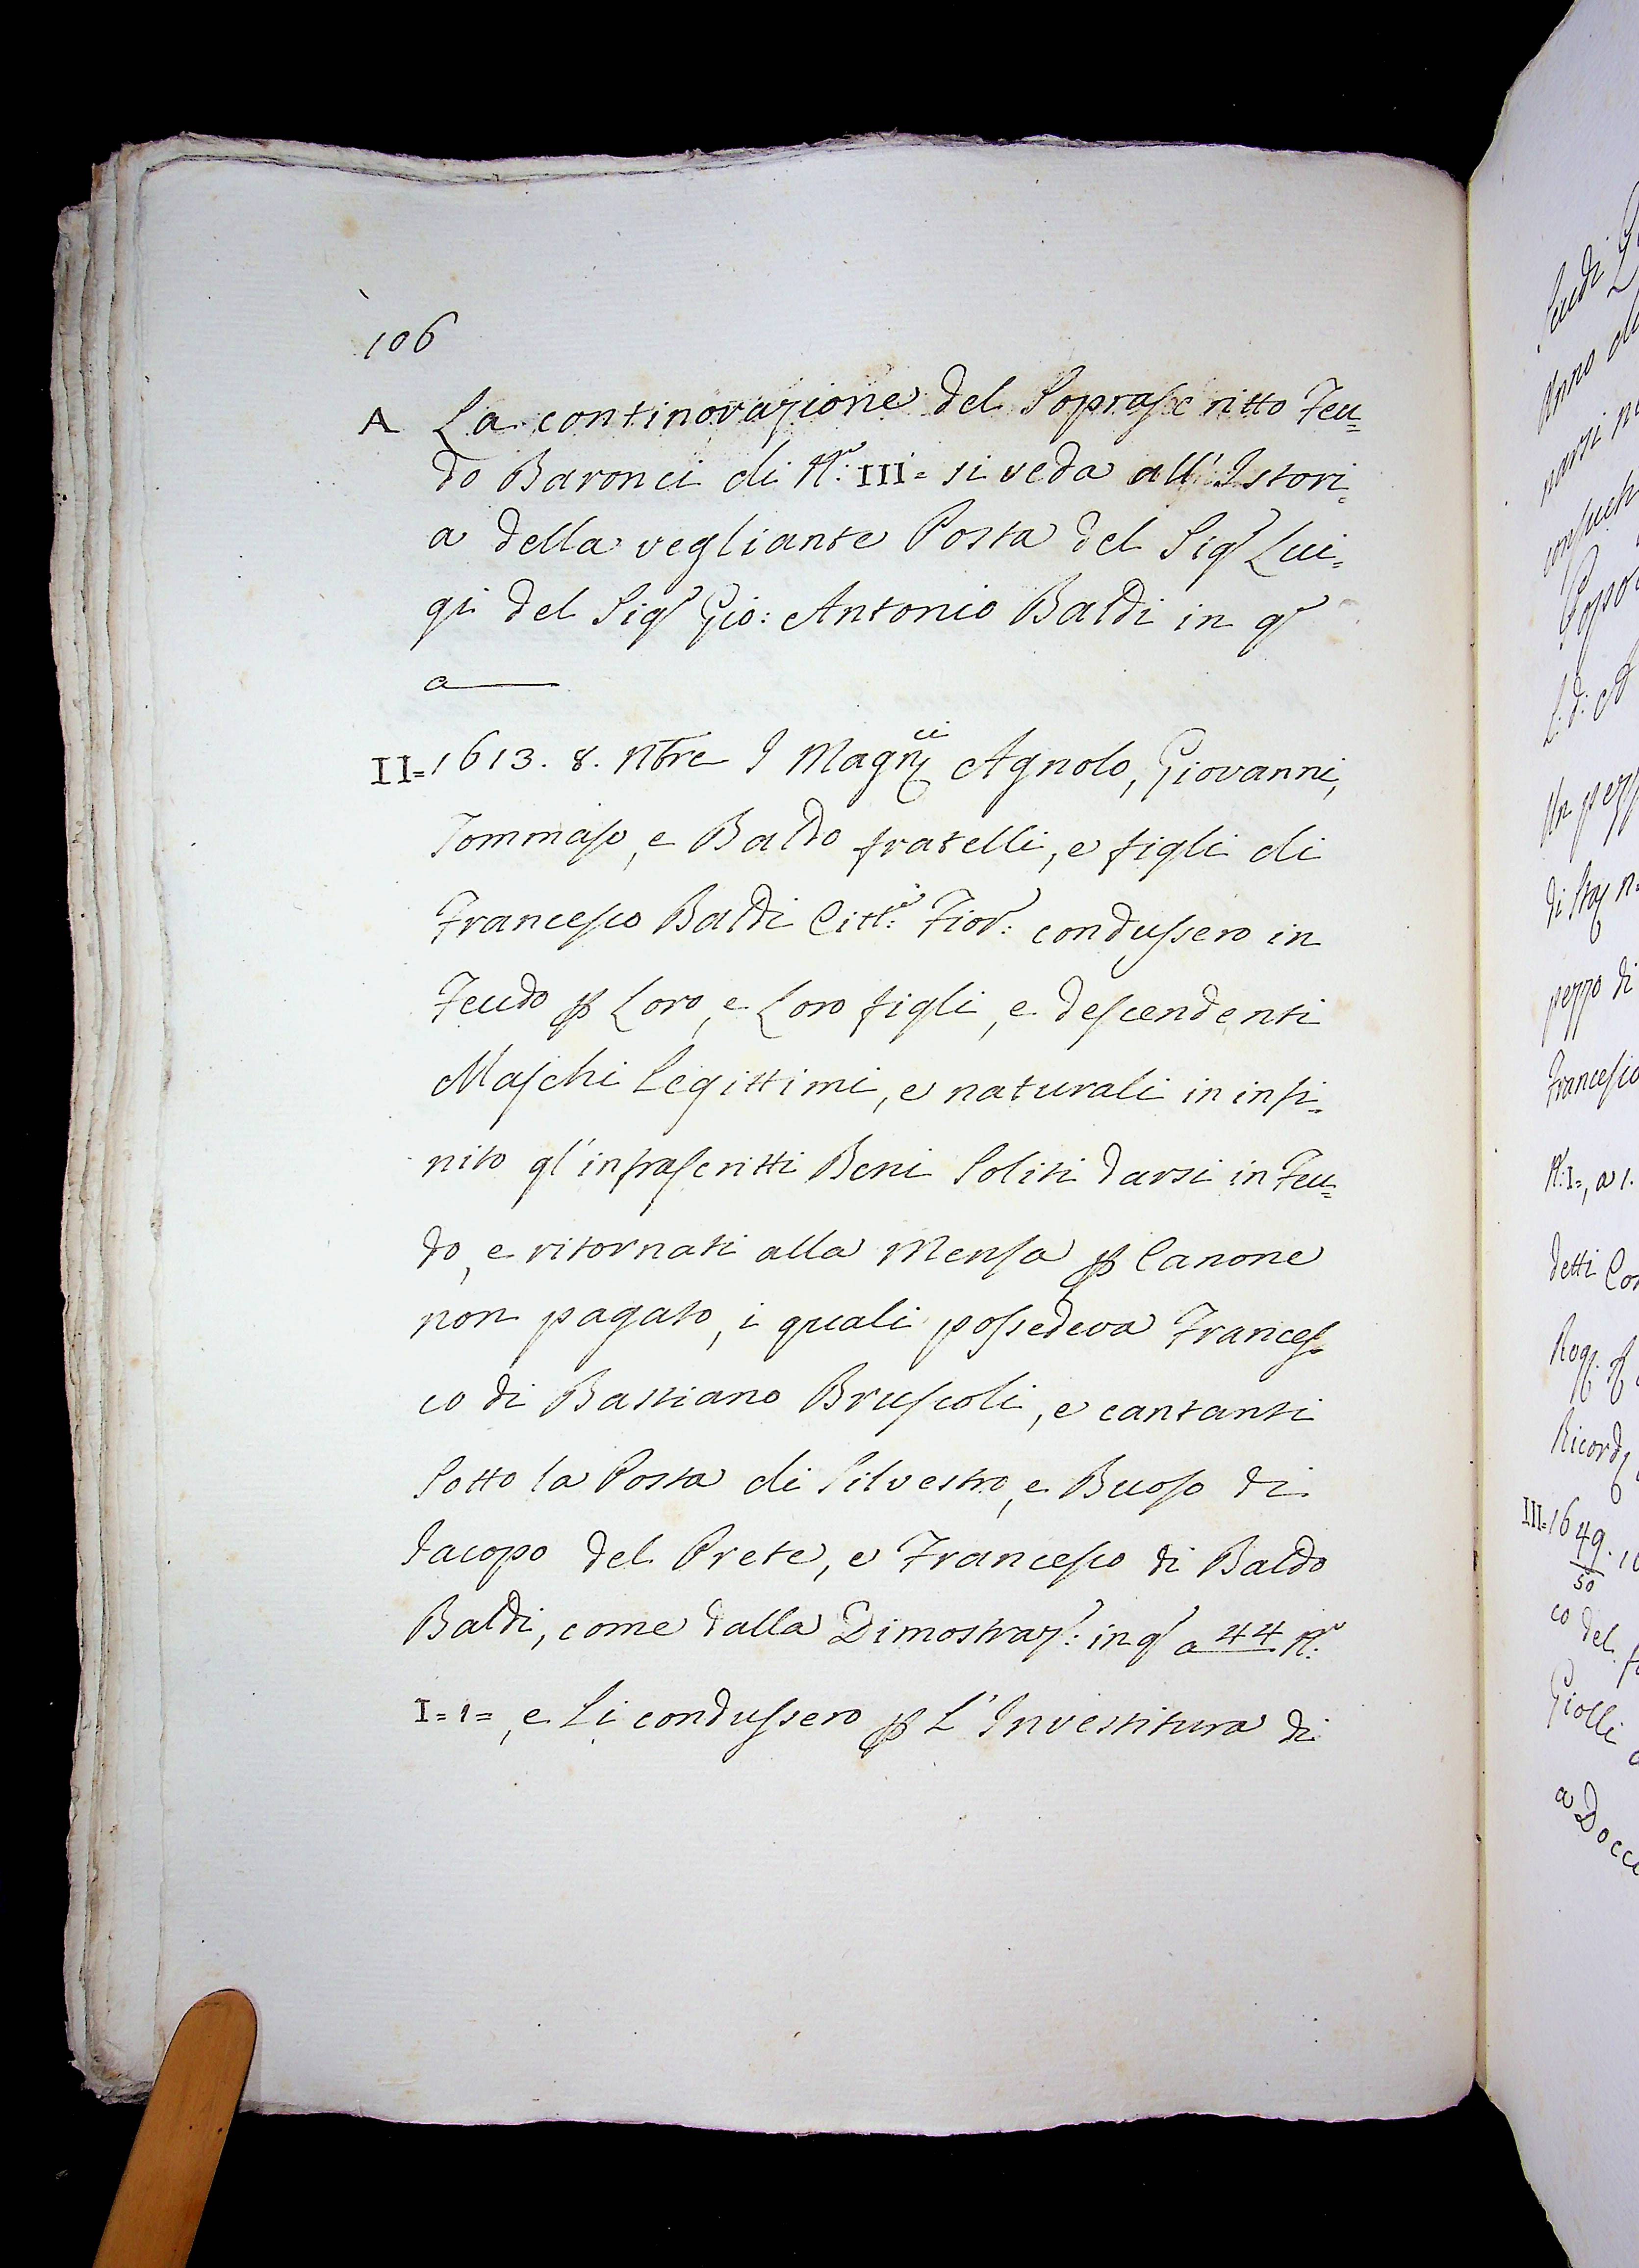 106
A La continovazione del Soprascritto Feu=
do Baronci di N.º III= si veda all' Istori=
a della vegliante Posta del Sig.r Lui=
gi del Sig.r Gio: Antonio Baldi in q.o
a
II= 1613. 8. Nbre I Magn.ci Agnolo, Giovanni,
Tommaso, e Baldo fratelli, e figli di
Francesco Baldi Citt.i: Fior.: condussero in
Feudo ꝑ Loro, e Loro figli, e descendenti
Maschi legittimi, e naturali in infi=
nito gl' infrascritti Beni Soliti darsi in Feu=
do, e ritornati alla Mensa ꝑ Canone
non pagato, i quali possedeva Frances=
co di Bastiano Bruscoli, e cantanti
Sotto la Posta di Silvestro, e Buoso di
Jacopo del Prete, e Francesco di Baldo
Baldi, come dalla Dimostraz.e: in q.o a 44 N.º:
I=1=, e Li condussero ꝑ L' Investitura di
Feudi
Anno
narsi
Un pezz
di
pezzo di
Francesco
N.º I=, a 1.
detti
Rog.
Ricord
III= 1649.
50
co del
Giolli
a